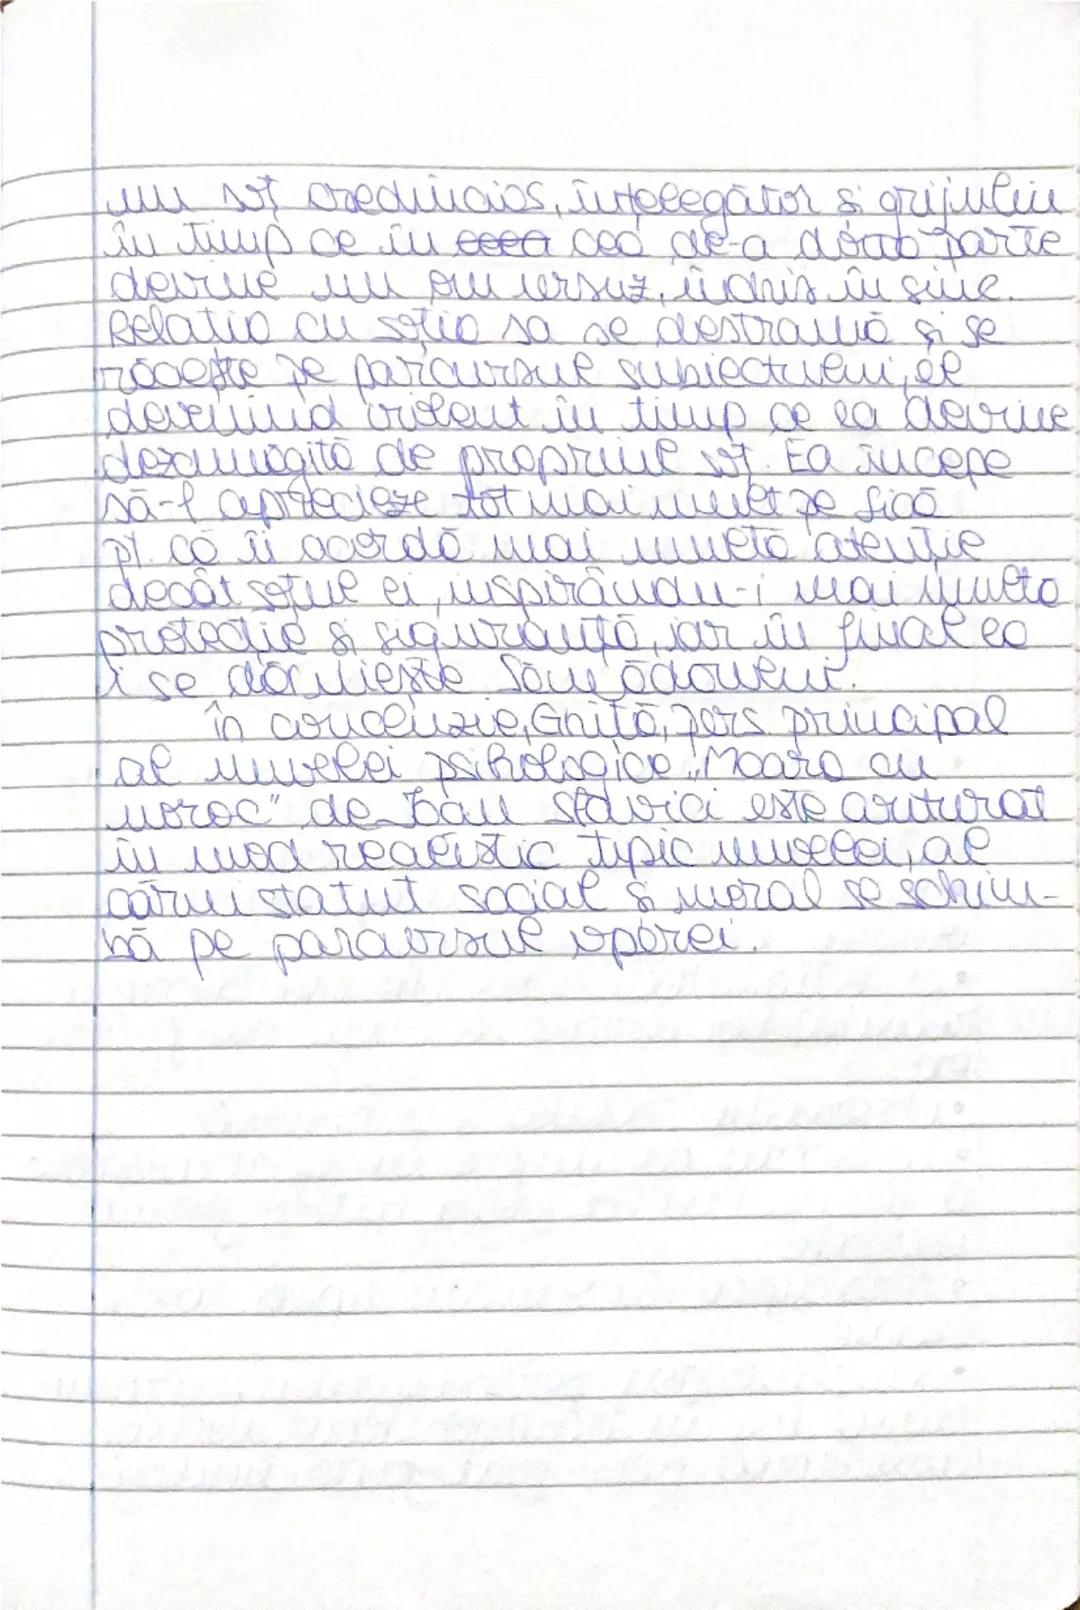 un soț credincios, înțelegător și grijuliu
în timp ce în cea de-a doua parte
devine un om ursuz, închis în sine.
Relația cu soția sa se destramă și se
răcește pe parcursul subiectului, el
devenind violent în timp ce ea devine
dezamăgită de propriul soț. Ea începe
să-l aprecieze tot mai mult pe fică
pt. că îi acordă mai multă atenție
decât soțul ei, inspirându-i mai multă
protecție și siguranță, iar în final ea
i se dăruiește Sămădăului.
În concluzie, Ghiță, pers principal
al nuvelei psihologice „Moara cu
noroc" de Ioan Slavici este conturat
în mod realistic tipic nuvelei, al
cărui statut social și moral se schim-
bă pe parcursul operei.